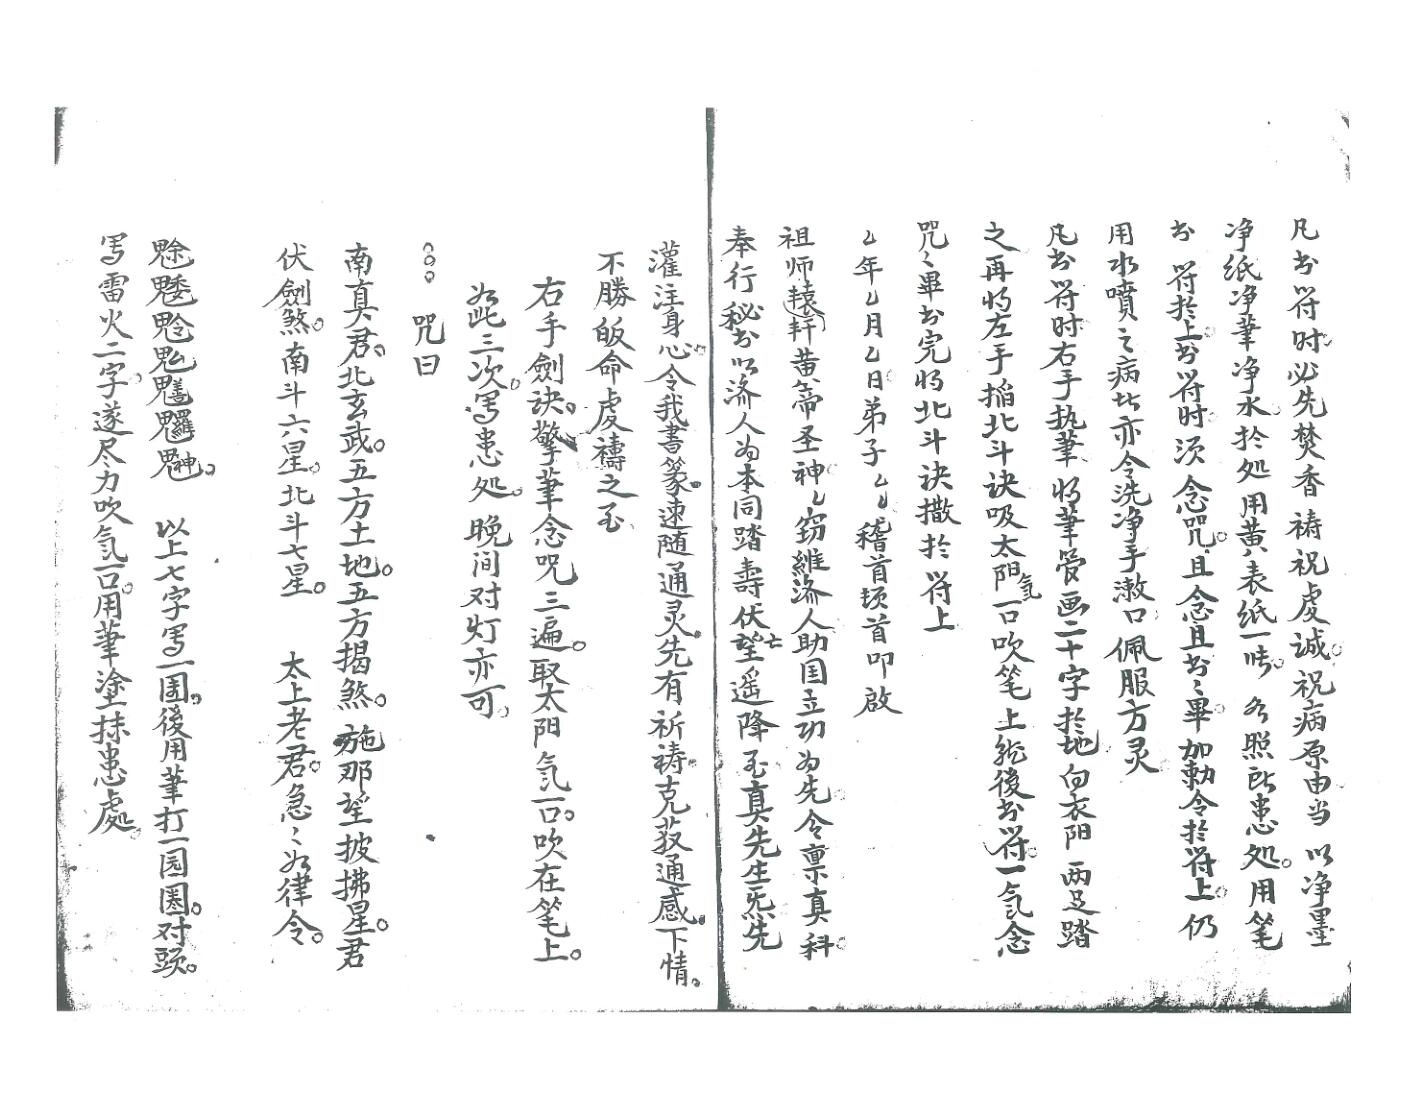 凡书符时。必先焚香祷祝虔诚。祝病原由当以净墨
净纸净筆净水。扵处用黄表纸一㑇。各照所患处。用笔
书符扵上。书符时须念咒。且念且书〻畢加勅令扵符上。仍
用水噴之病此亦令洗净手漱口佩服方灵
凡书符时右手执筆将筆管画二十字扵地向衣阳两足踏
之再将左手掐北斗诀吸太阳气一口吹笔上然後书符。一气念
咒〻畢书完将北斗诀撒扵符上
乙年乙月乙日弟子乙乙稽首顿首叩啟
祖师轅轩黄帝圣神。乙窃維济人助国立功为先。今禀真科。
奉行秘书以济人为本同踏壽伏望遥降至真先生炁先
灌注身心。令我書篆。速随通灵。先有祈祷。克蒅通感。下情。
不勝皈命虔禱之至
右手劍诀。擎筆念呪三遍。取太阳氣一口。吹在笔上。
如此三次。写患处。晚间对灯亦可。
咒曰
南真君。北玄武。五方土地。五方揭煞。施那望披拂星。君
伏劍煞。南斗六星。北斗七星。太上老君。急〻如律令。
以上七字写一圄。後用筆打一园圈。对頭。
写雷火二字。遂尽力吹氣一口。用筆塗抹患處。